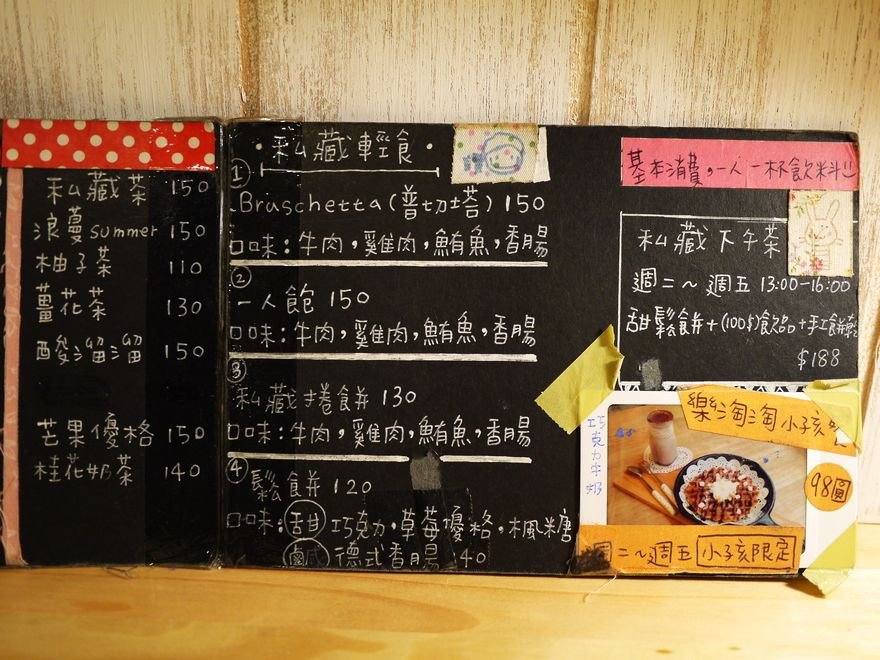 私藏茶 150
浪蔓summer 150
柚子茶 110
薑花茶 130
酸溜溜 150
芒果優格 150
桂花奶茶 140
·私藏輕食·
① Bruschetta(普切塔) 150
口味:牛肉,雞肉,鮪魚,香腸
② 一人飽 150
口味:牛肉,雞肉,鮪魚,香腸
③ 私藏捲餅 130
口味:牛肉,雞肉,鮪魚,香腸
④ 鬆餅 120
口味:甜 巧克力,草莓優格,楓糖
鹹 德式香腸 40
基本消費,一人一杯飲料!!
私藏下午茶
週二~週五 13:00-16:00
甜鬆餅+(100$)飲品+手工餅乾
$188
樂淘淘小孩
巧克力牛奶
98圓
週二~週五 小孩限定